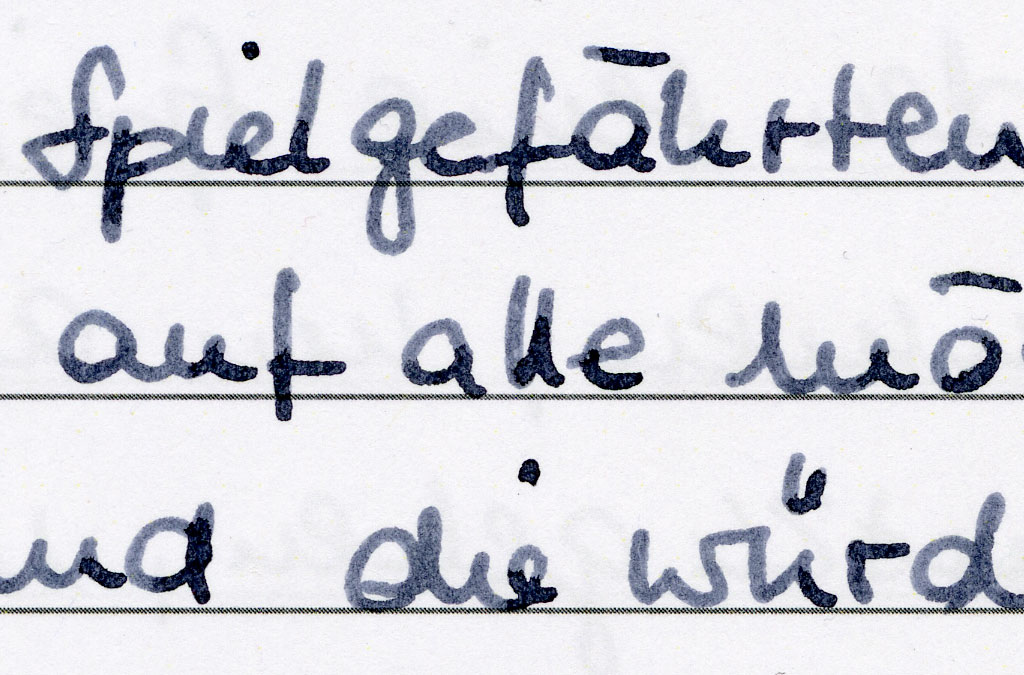 Spielgefährten
auf alle mö
und die würd